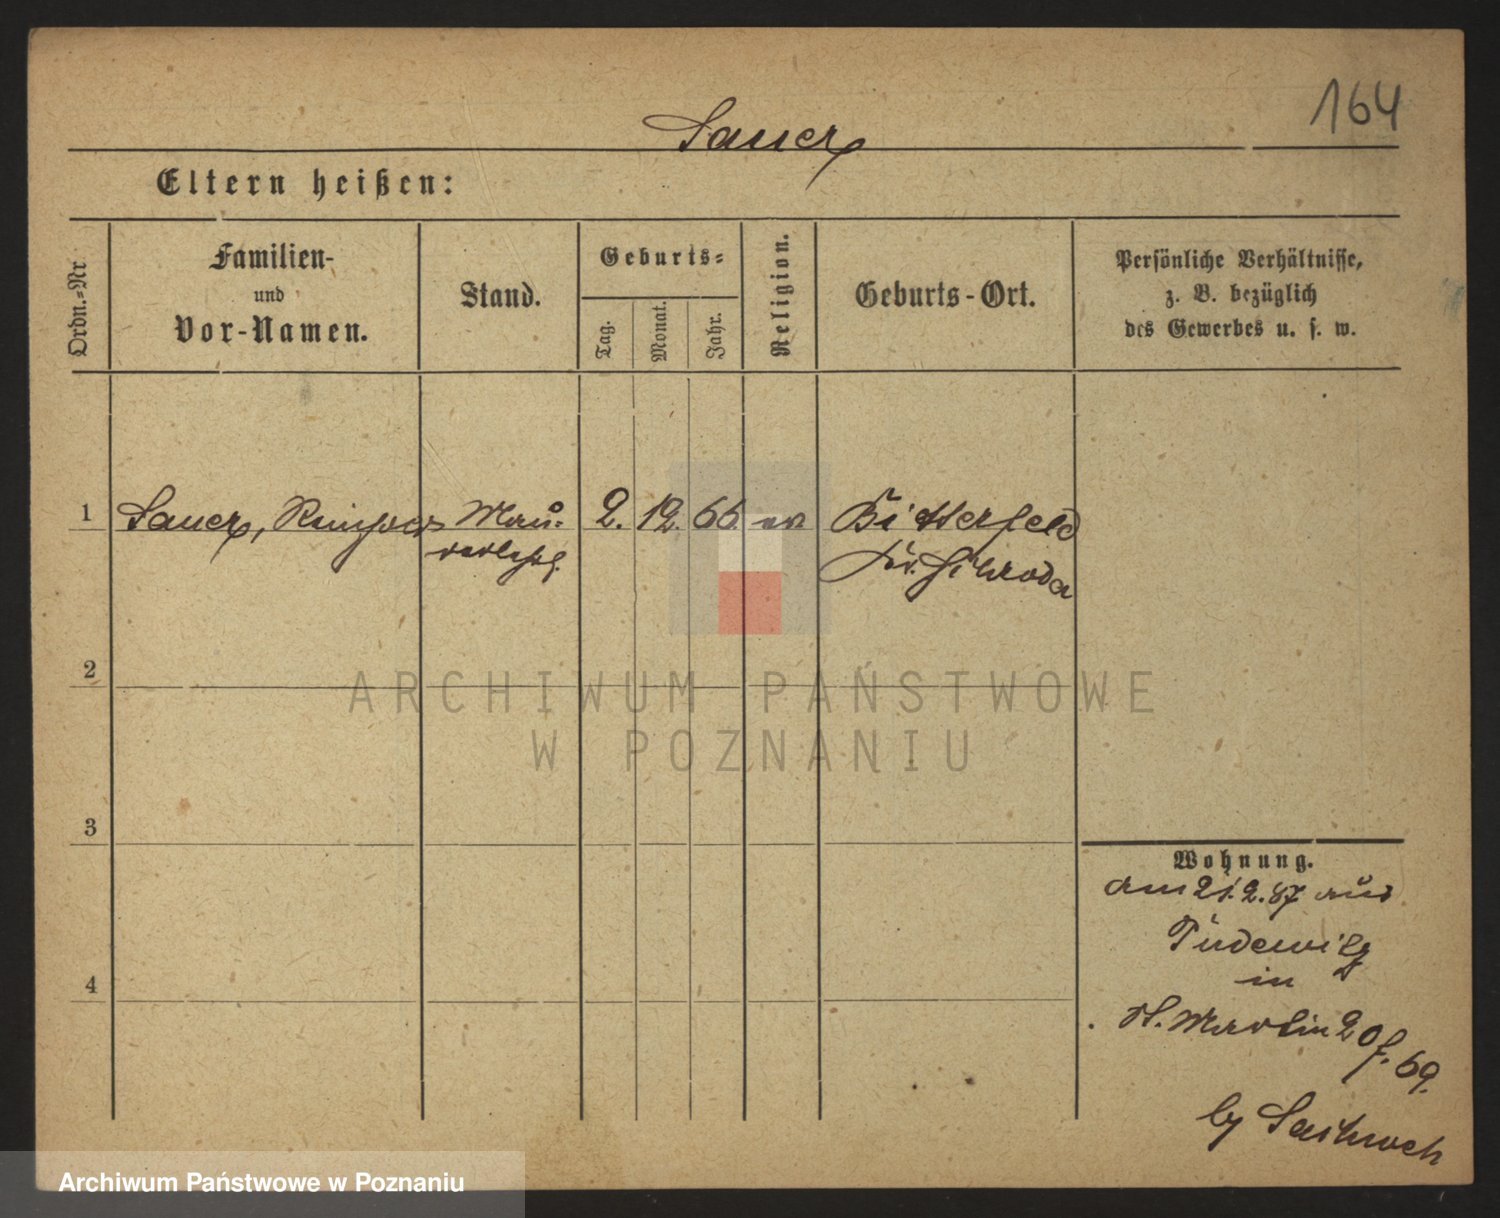 164
Sauer
Eltern heißen:
Ordn.-Nr.
Familien-
und
Vor-Namen.
Stand.
Geburts-
Tag.
Monat.
Jahr.
Religion.
Geburts-Ort.
Persönliche Verhältnisse,
z. B. bezüglich
des Gewerbes u. s. w.
1 Sauer, Mau- 2. 12. 66. ev Bitterfeld
rerlehrl. Kr. Schroda
2
3
4
Wohnung.
am 21.2.87 aus
Pudewitz
in
St. Martin 20 f. 69.
by
ARCHIWUM PAŃSTWOWE
W POZNANIU
Archiwum Państwowe w Poznaniu